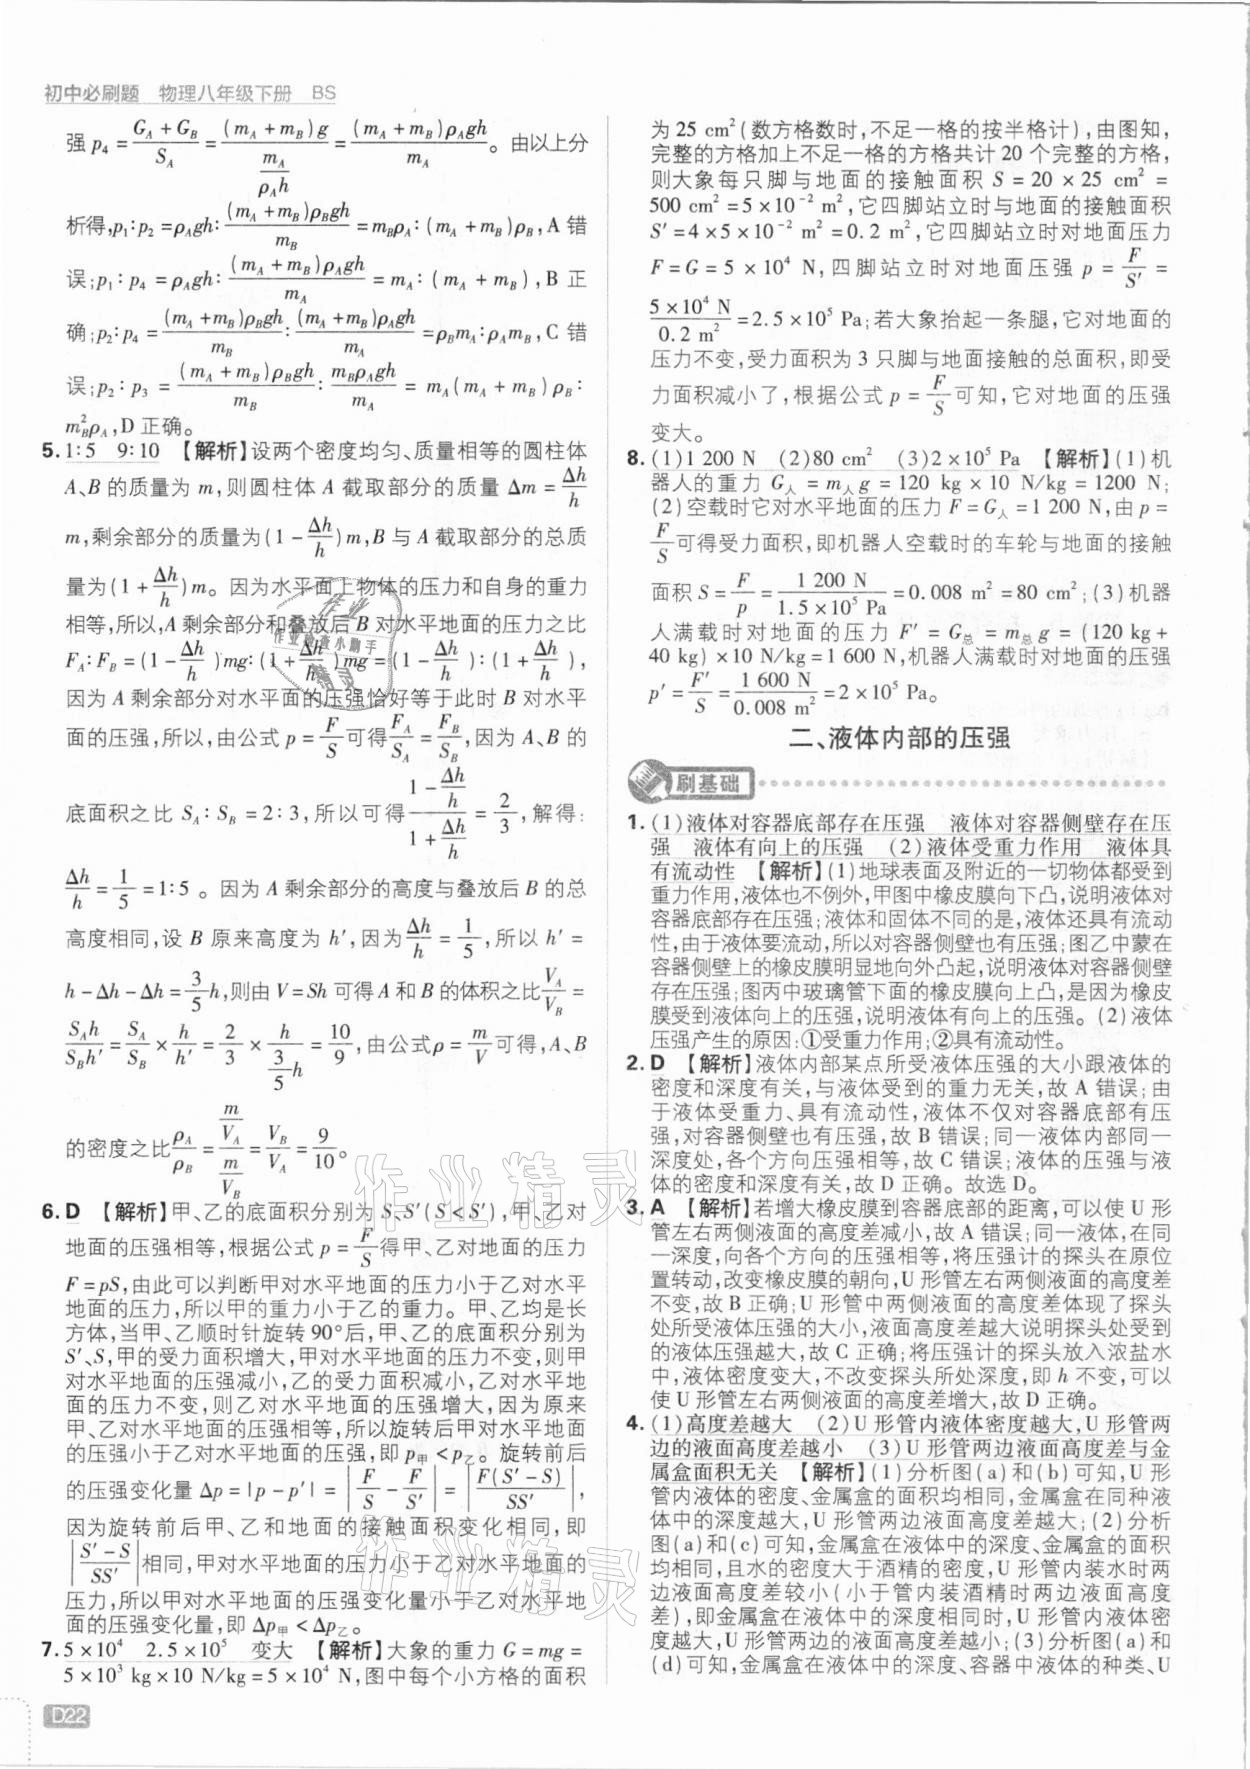 初中必刷题 物理八年级下册 BS
强 p₄ = (G_A + G_B)/S_A = (m_A + m_B)g/(m_A/(ρ_A h)) = (m_A + m_B)ρ_A gh/m_A。由以上分
析得,p₁∶p₂ = ρ_A gh∶(m_A + m_B)ρ_B gh/m_B = m_Bρ_A∶(m_A + m_B)ρ_B,A 错
误;p₁∶p₄ = ρ_A gh∶(m_A + m_B)ρ_A gh/m_A = m_A∶(m_A + m_B),B 正
确;p₂∶p₄ = (m_A + m_B)ρ_B gh/m_B∶(m_A + m_B)ρ_A gh/m_A = ρ_B m_A∶ρ_A m_B,C 错
误;p₂∶p₃ = (m_A + m_B)ρ_B gh/m_B∶m_Bρ_A gh/m_A = m_A(m_A + m_B)ρ_B∶
m_B²ρ_A,D 正确。
5. 1∶5 9∶10 【解析】设两个密度均匀、质量相等的圆柱体
A、B 的质量为 m,则圆柱体 A 截取部分的质量 Δm = Δh/h
m,剩余部分的质量为(1 - Δh/h)m,B 与 A 截取部分的总质
量为(1 + Δh/h)m。因为水平面上物体的压力和自身的重力
相等,所以,A 剩余部分和叠放后 B 对水平地面的压力之比
F_A∶F_B = (1 - Δh/h)mg∶(1 + Δh/h)mg = (1 - Δh/h)∶(1 + Δh/h),
因为 A 剩余部分对水平面的压强恰好等于此时 B 对水平
面的压强,所以,由公式 p = F/S 可得 F_A/S_A = F_B/S_B,因为 A、B 的
底面积之比 S_A∶S_B = 2∶3,所以可得 (1 - Δh/h)/(1 + Δh/h) = 2/3,解得:
Δh/h = 1/5 = 1∶5 。因为 A 剩余部分的高度与叠放后 B 的总
高度相同,设 B 原来高度为 h′,因为 Δh/h = 1/5,所以 h′ =
h - Δh - Δh = 3/5 h,则由 V = Sh 可得 A 和 B 的体积之比 V_A/V_B =
S_A h/S_B h′ = S_A/S_B × h/h′ = 2/3 × h/(3/5 h) = 10/9,由公式 ρ = m/V 可得,A、B
的密度之比 ρ_A/ρ_B = (m/V_A)/(m/V_B) = V_B/V_A = 9/10。
6. D 【解析】甲、乙的底面积分别为 S、S′(S < S′),甲、乙对
地面的压强相等,根据公式 p = F/S 得甲、乙对地面的压力
F = pS,由此可以判断甲对水平地面的压力小于乙对水平
地面的压力,所以甲的重力小于乙的重力。甲、乙均是长
方体,当甲、乙顺时针旋转 90°后,甲、乙的底面积分别为
S′、S,甲的受力面积增大,甲对水平地面的压力不变,则甲
对水平地面的压强减小,乙的受力面积减小,乙对水平地
面的压力不变,则乙对水平地面的压强增大,因为原来
甲、乙对水平地面的压强相等,所以旋转后甲对水平地面
的压强小于乙对水平地面的压强,即 p甲 < p乙。旋转前后
的压强变化量 Δp = |p - p′| = |F/S - F/S′| = |F(S′ - S)/SS′|,
因为旋转前后甲、乙和地面的接触面积变化相同,即
|(S′ - S)/SS′| 相同,甲对水平地面的压力小于乙对水平地面的
压力,所以甲对水平地面的压强变化量小于乙对水平地
面的压强变化量,即 Δp甲 < Δp乙。
7. 5 × 10⁴ 2.5 × 10⁵ 变大 【解析】大象的重力 G = mg =
5 × 10³ kg × 10 N/kg = 5 × 10⁴ N,图中每个小方格的面积
D22
为 25 cm²(数方格数时,不足一格的按半格计),由图知,
完整的方格加上不足一格的方格共计 20 个完整的方格,
则大象每只脚与地面的接触面积 S = 20 × 25 cm² =
500 cm² = 5 × 10⁻² m²,它四脚站立时与地面的接触面积
S′ = 4 × 5 × 10⁻² m² = 0.2 m²,它四脚站立时对地面压力
F = G = 5 × 10⁴ N,四脚站立时对地面压强 p = F/S′ =
5 × 10⁴ N/0.2 m² = 2.5 × 10⁵ Pa;若大象抬起一条腿,它对地面的
压力不变,受力面积为 3 只脚与地面接触的总面积,即受
力面积减小了,根据公式 p = F/S 可知,它对地面的压强
变大。
8. (1)1 200 N (2)80 cm² (3)2 × 10⁵ Pa 【解析】(1)机
器人的重力 G人 = m人g = 120 kg × 10 N/kg = 1200 N;
(2)空载时它对水平地面的压力 F = G人 = 1 200 N,由 p =
F/S 可得受力面积,即机器人空载时的车轮与地面的接触
面积 S = F/p = 1 200 N/(1.5 × 10⁵ Pa) = 0.008 m² = 80 cm²;(3)机器
人满载时对地面的压力 F′ = G总 = m总g = (120 kg +
40 kg) × 10 N/kg = 1 600 N,机器人满载时对地面的压强
p′ = F′/S = 1 600 N/0.008 m² = 2 × 10⁵ Pa。
二、液体内部的压强
刷基础
1. (1)液体对容器底部存在压强 液体对容器侧壁存在压
强 液体有向上的压强 (2)液体受重力作用 液体具
有流动性 【解析】(1)地球表面及附近的一切物体都受到
重力作用,液体也不例外,甲图中橡皮膜向下凸,说明液体对
容器底部存在压强;液体和固体不同的是,液体还具有流动
性,由于液体要流动,所以对容器侧壁也有压强;图乙中蒙在
容器侧壁上的橡皮膜明显地向外凸起,说明液体对容器侧壁
存在压强;图丙中玻璃管下面的橡皮膜向上凸,是因为橡皮
膜受到液体向上的压强,说明液体有向上的压强。(2)液体
压强产生的原因:①受重力作用;②具有流动性。
2. D 【解析】液体内部某点所受液体压强的大小跟液体的
密度和深度有关,与液体受到的重力无关,故 A 错误;由
于液体受重力、具有流动性,液体不仅对容器底部有压
强,对容器侧壁也有压强,故 B 错误;同一液体内部同一
深度处,各个方向压强相等,故 C 错误;液体的压强与液
体的密度和深度有关,故 D 正确。故选 D。
3. A 【解析】若增大橡皮膜到容器底部的距离,可以使 U 形
管左右两侧液面的高度差减小,故 A 错误;同一液体,在同
一深度,向各个方向的压强相等,将压强计的探头在原位
置转动,改变橡皮膜的朝向,U 形管左右两侧液面的高度差
不变,故 B 正确;U 形管中两侧液面的高度差体现了探头
处所受液体压强的大小,液面高度差越大说明探头处受到
的液体压强越大,故 C 正确;将压强计的探头放入浓盐水
中,液体密度变大,不改变探头所处深度,即 h 不变,可以
使 U 形管左右两侧液面的高度差增大,故 D 正确。
4. (1)高度差越大 (2)U 形管内液体密度越大,U 形管两
边的液面高度差越小 (3)U 形管两边液面高度差与金
属盒面积无关 【解析】(1)分析图(a)和(b)可知,U 形
管内液体的密度、金属盒的面积均相同,金属盒在同种液
体中的深度越大,U 形管两边的液面高度差越大;(2)分析
图(a)和(c)可知,金属盒在液体中的深度、金属盒的面积
均相同,且水的密度大于酒精的密度,U 形管内装水时两
边液面高度差较小(小于管内装酒精时两边液面高度
差),即金属盒在液体中的深度相同时,U 形管内液体密
度越大,U 形管两边的液面高度差越小;(3)分析图(a)和
(d)可知,金属盒在液体中的深度、容器中液体的种类、U
作业
作业检查小助手
精灵
作业精灵
作业精灵